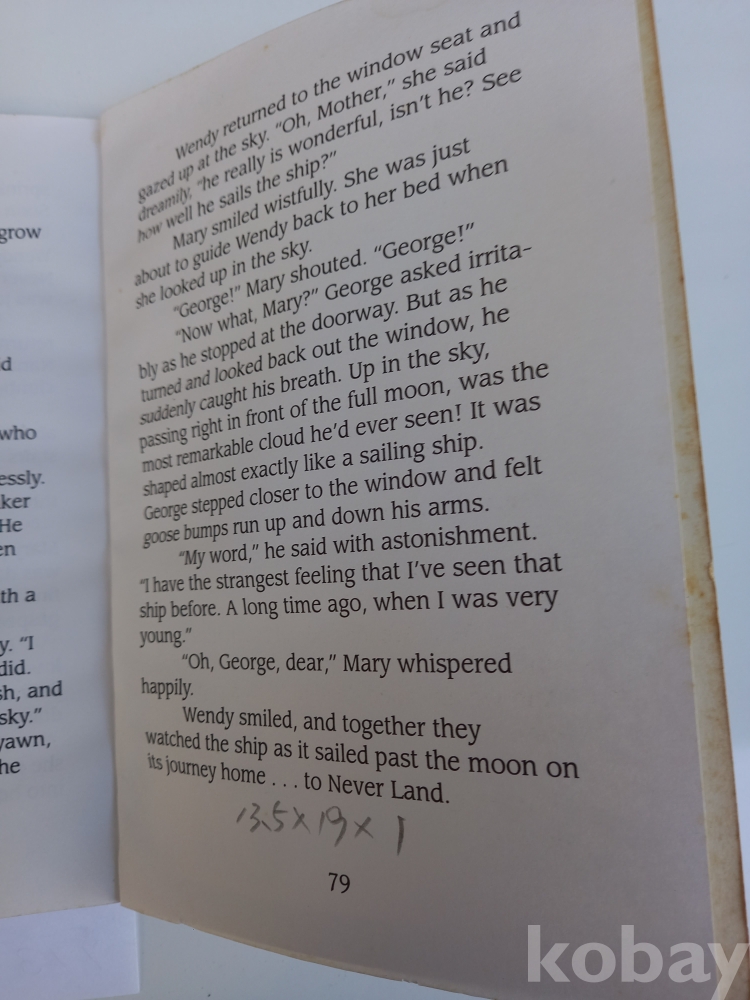 grow
d
who
essly.
ker
He
en
th a
y. "I
did.
sh, and
sky."
yawn,
he
Wendy returned to the window seat and
gazed up at the sky. "Oh, Mother," she said
dreamily, "he really is wonderful, isn't he? See
how well he sails the ship?"
Mary smiled wistfully. She was just
about to guide Wendy back to her bed when
she looked up in the sky.
"George!" Mary shouted. "George!"
"Now what, Mary?" George asked irrita-
bly as he stopped at the doorway. But as he
turned and looked back out the window, he
suddenly caught his breath. Up in the sky,
passing right in front of the full moon, was the
most remarkable cloud he'd ever seen! It was
shaped almost exactly like a sailing ship.
George stepped closer to the window and felt
goose bumps run up and down his arms.
"My word," he said with astonishment.
"I have the strangest feeling that I've seen that
ship before. A long time ago, when I was very
young."
"Oh, George, dear," Mary whispered
happily.
Wendy smiled, and together they
watched the ship as it sailed past the moon on
its journey home . . . to Never Land.
13.5 x 19 x 1
79
kobay